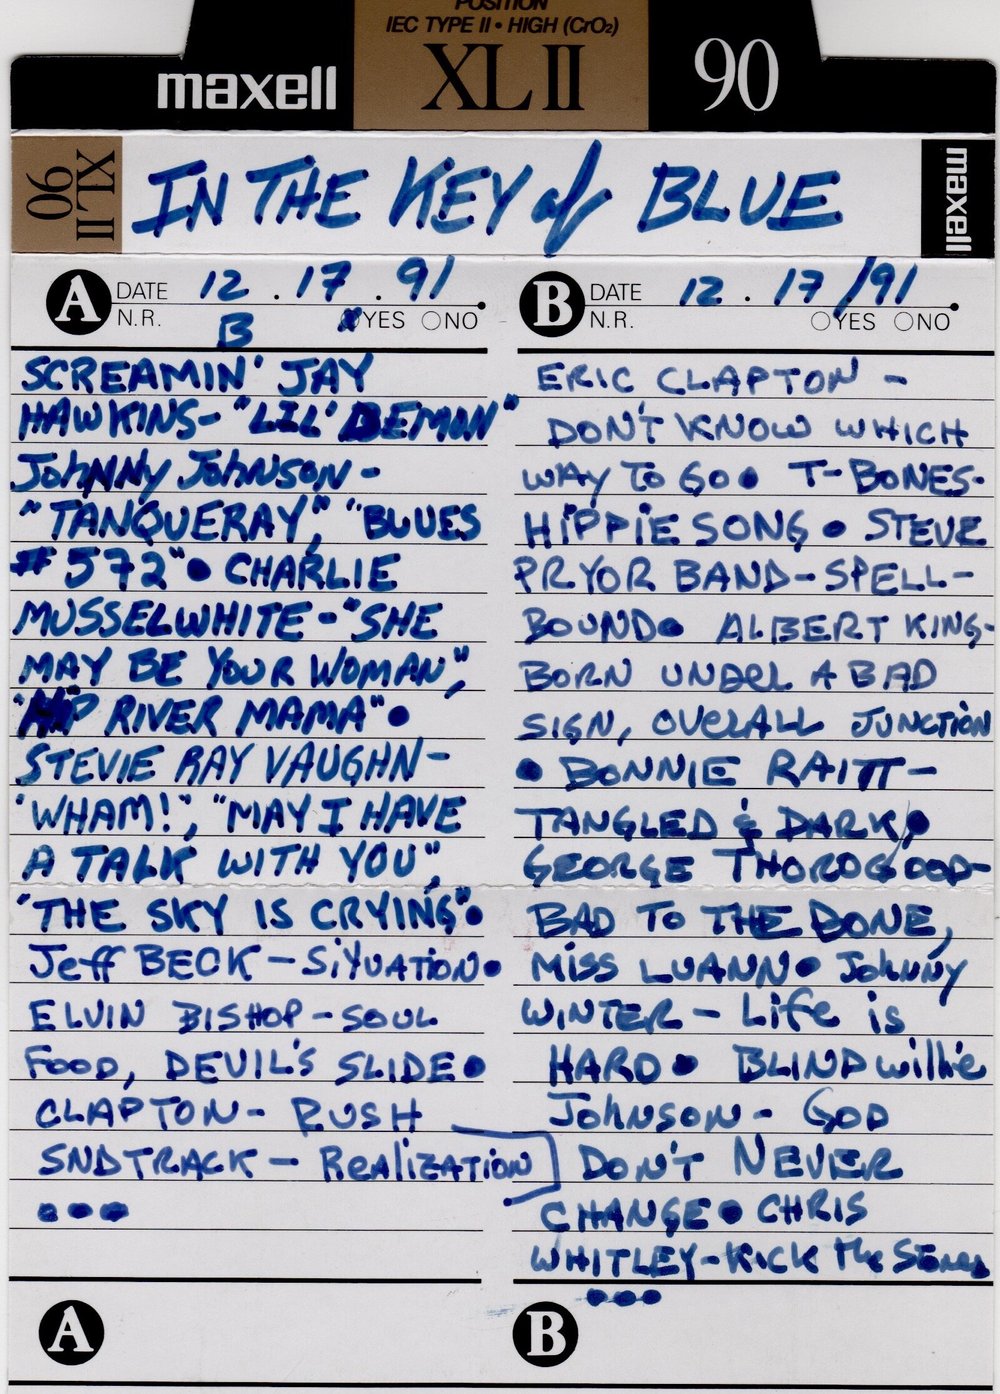 POSITION
IEC TYPE II • HIGH (CrO2)
maxell XL II 90
XL II 90
IN THE KEY of BLUE
maxell
A DATE 12 . 17 . 91
N.R. B YES NO
SCREAMIN' JAY
HAWKINS- "LIL' DEMON"
JohNNy JohNSON -
"TANQUERAY," "BLUES
#572" • CHARLIE
MUSSELWHITE - "SHE
MAY BE YOUR WOMAN",
RIVER MAMA" •
STEVIE RAY VAUGHN -
"WHAM!", "MAY I HAVE
A TALK WITH YOU",
"THE SKY IS CRYING" •
Jeff BECK - SiYUATION •
ELVIN BISHOP - SOUL
FOOD, DEVIL'S SLIDE •
CLAPTON - RUSH
SNDTRACK - ReAliZATION
•••
A
B DATE 12 . 17 /91
N.R. YES NO
ERIC CLAPTON -
DON'T KNOW WHICH
WAY TO GO • T-BONES-
HiPPiE SONG • STEVE
PRYOR BAND - SPELL-
BOUND • ALBERT KING-
BORN UNDER A BAD
SIGN, OVERALL JUNCTION
• BONNIE RAITT -
TANGLED & DARK •
GEORGE THOROGOOD-
BAD TO THE BONE,
MISS LUANN • JohNNy
WINTER - Life is
HARD • BLIND Willie
JohNSON - GOD
DON'T NEVER
CHANGE • CHRIS
WHITLEY - KICK the StoNes
•••
B